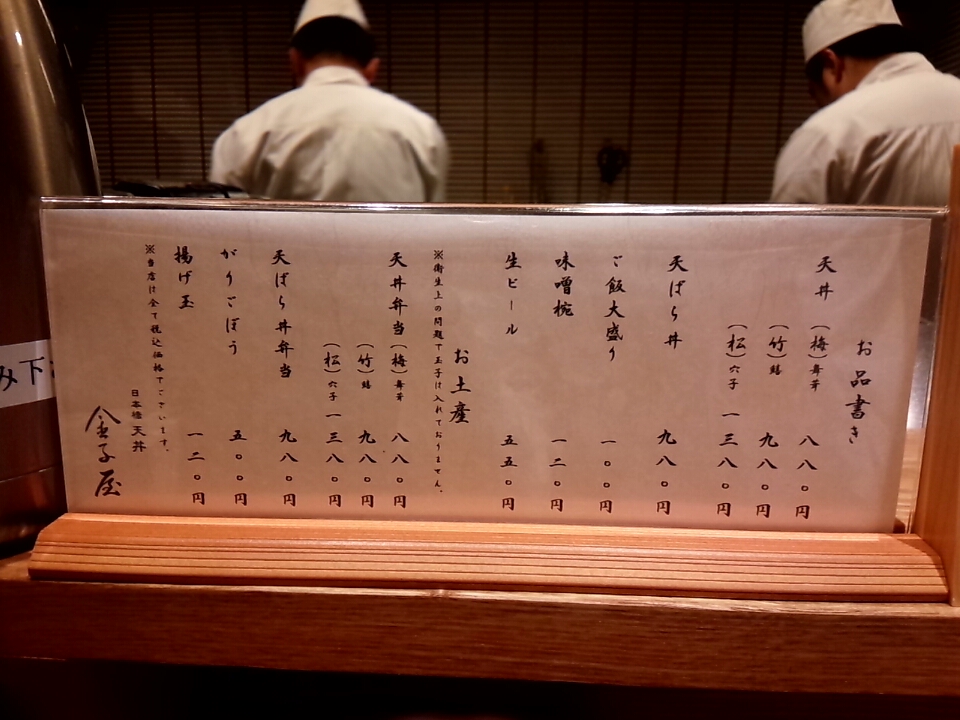 お品書き
天丼 (梅) 舞茸 八八〇円
(竹) 鱚 九八〇円
(松) 穴子 一三八〇円
天ばら丼 九八〇円
ご飯大盛り 一〇〇円
味噌椀 一二〇円
生ビール 五五〇円
お土産
※衛生上の問題で玉子は入れておりません。
天丼弁当 (梅) 舞茸 八八〇円
(竹) 鱚 九八〇円
(松) 穴子 一三八〇円
天ばら丼弁当 九八〇円
がりごぼう 五〇〇円
揚げ玉 一二〇円
※当店は全て税込価格でございます。
日本橋 天丼
金子屋
み下